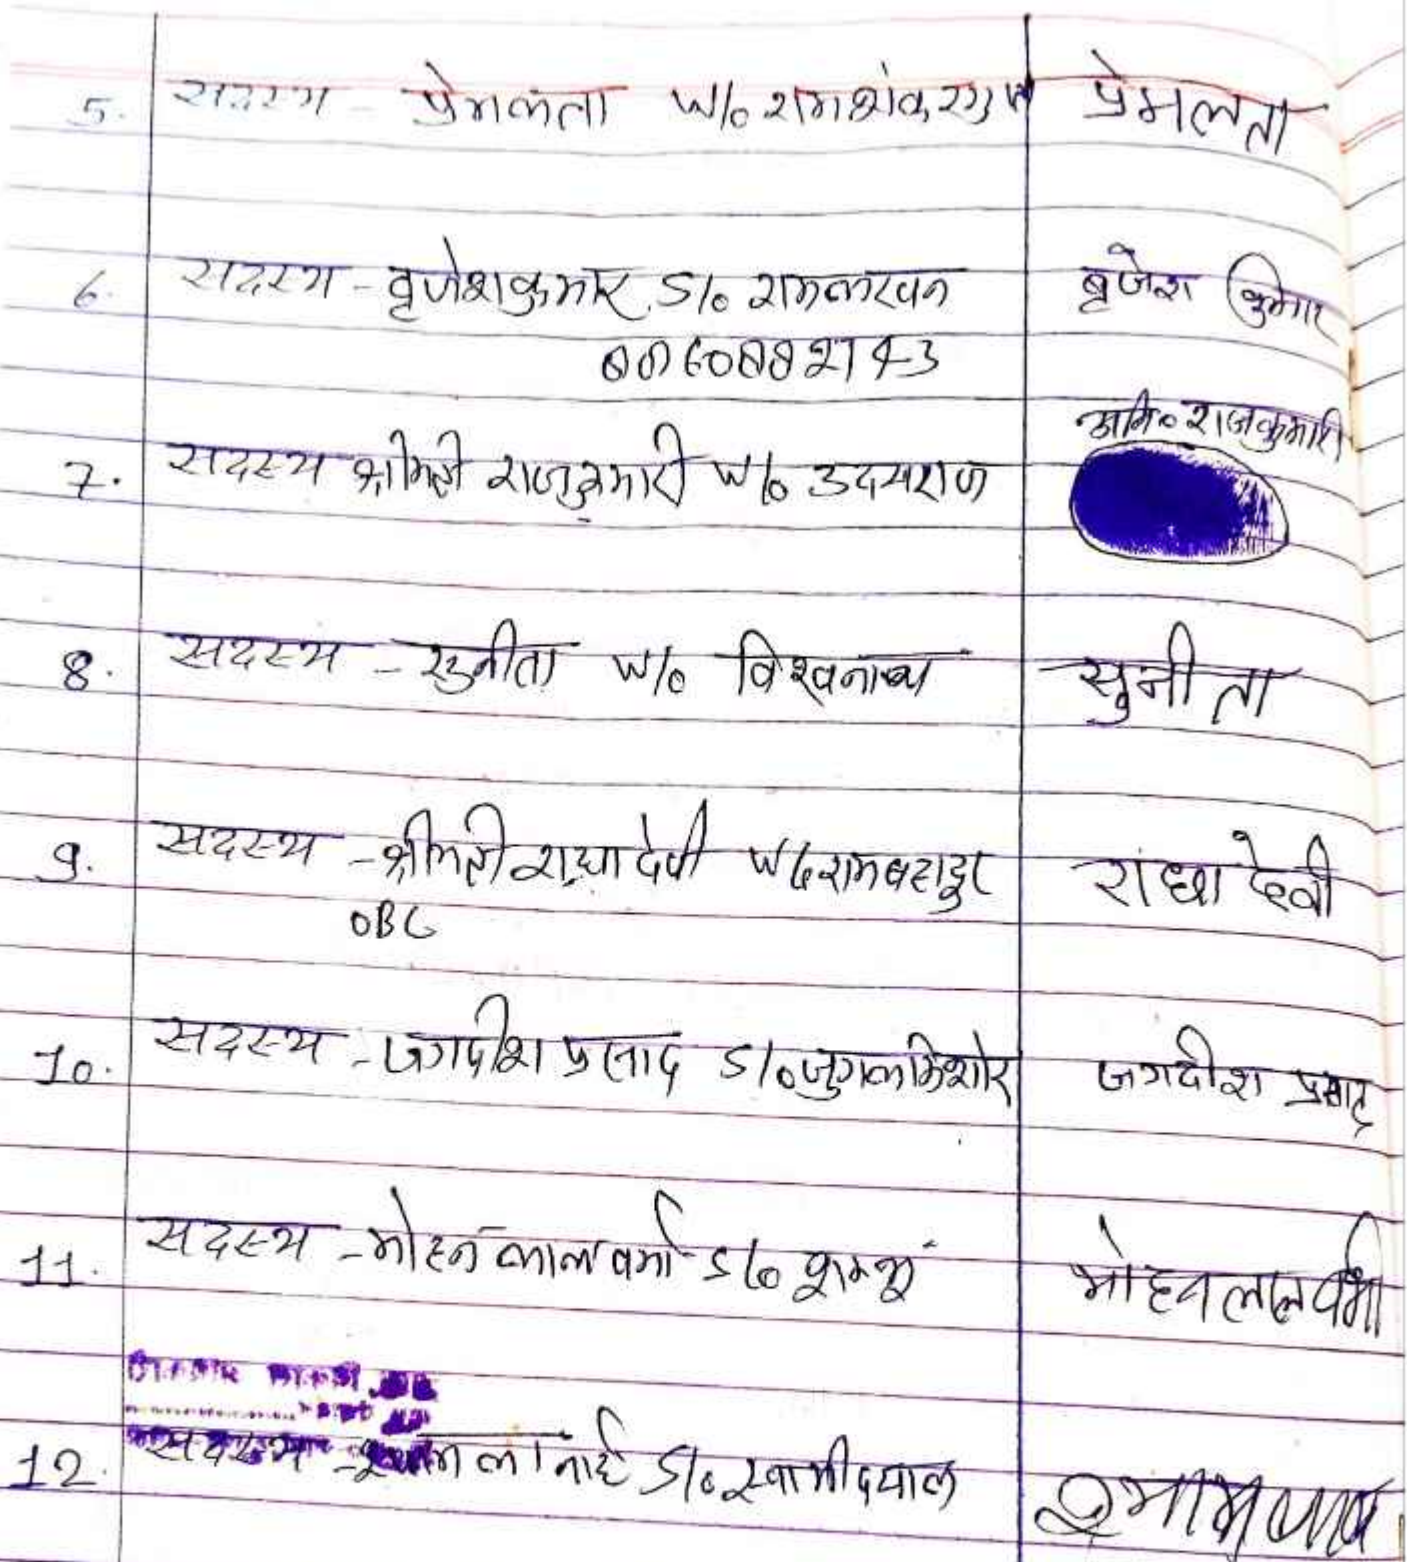 5. सदस्य - प्रेमलता W/o रामशंकर प्रेमलता
6. सदस्य - बृजेशकुमार S/o रामलखन बृजेश कुमार
7. सदस्य श्रीमती राजकुमारी W/o उदयराज
राजकुमारी
8. सदस्य - सुनीता W/o विश्वनाथ सुनीता
9. सदस्य - श्रीमती राधा देवी W/o रामबहादुर राधा देवी
OBC
10. सदस्य - जगदीश प्रसाद S/o जुगलकिशोर जगदीश प्रसाद
11. सदस्य - मोहन लाल वर्मा S/o मोहनलाल वर्मा
12. सदस्य - S/o स्वामीदयाल